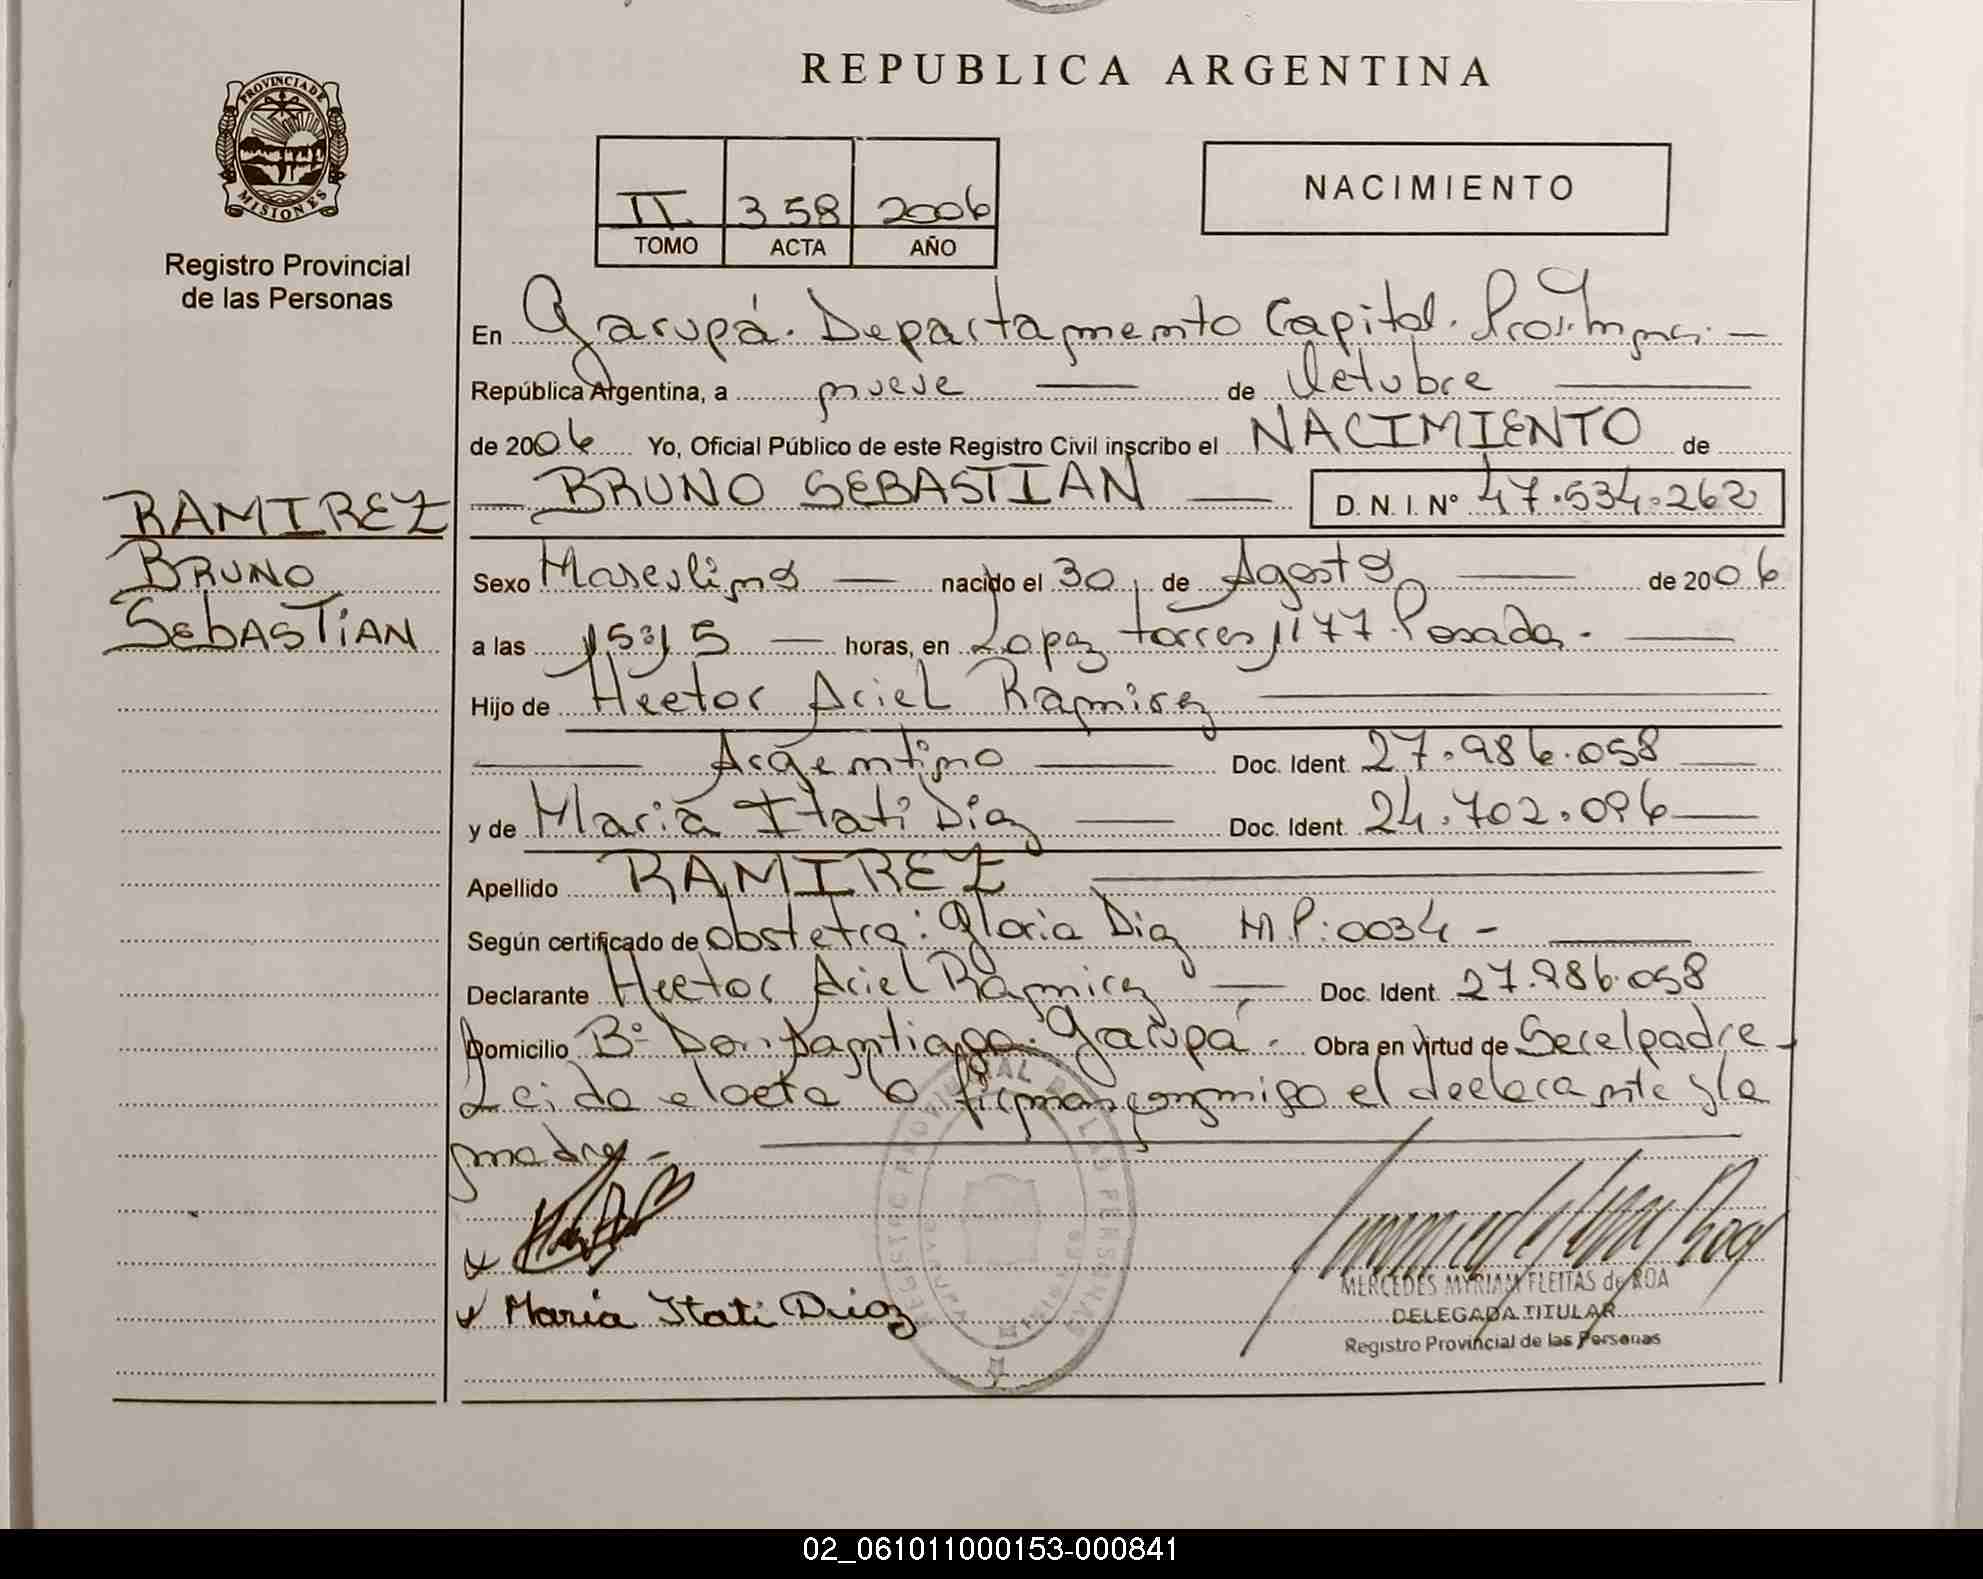 REPUBLICA ARGENTINA
PROVINCIA DE
MISIONES
Registro Provincial
de las Personas
II 358 2006
TOMO ACTA AÑO
NACIMIENTO
En Garupá. Departamento Capital.
República Argentina, a nueve de Octubre
de 2006 Yo, Oficial Público de este Registro Civil inscribo el NACIMIENTO de
BRUNO SEBASTIAN D. N. I. Nº 47.534.262
RAMIREZ
BRUNO
SEBASTIAN
Sexo Masculino nacido el 30 de Agosto de 2006
a las 15:15 horas, en Lopez torres 1177. Posadas.
Hijo de Hector Ariel Ramirez
Argentino Doc. Ident. 27.986.058
y de Maria Itati Diaz Doc. Ident. 24.702.096
Apellido RAMIREZ
Según certificado de obstetra: Gloria Diaz M.P: 0034 -
Declarante Hector Ariel Ramirez Doc. Ident. 27.986.058
Domicilio Bº Don Santiago. Garupá. Obra en virtud de Ser el padre -
Leida el acta la firman conmigo el declarante y la
madre -
x
x Maria Itati Diaz
REGISTRO PROVINCIAL DE LAS PERSONAS
MERCEDES MYRIAM FLEITAS de ROA
DELEGADA TITULAR
Registro Provincial de las Personas
02_061011000153-000841